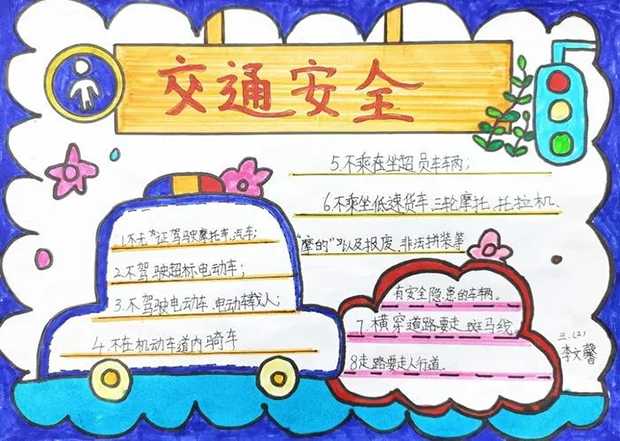 交通安全
1.不无证驾驶摩托车、汽车;
2.不驾驶超标电动车;
3.不驾驶电动车、电动车载人;
4.不在机动车道内骑车
5.不乘在坐超员车车辆;
6.不乘坐低速货车、三轮摩托、托拉机、
"摩的"以及报废、非法拼装等
有安全隐患的车辆。
7.横穿道路要走斑马线
8走路要走人行道.
三.(2)
李文馨